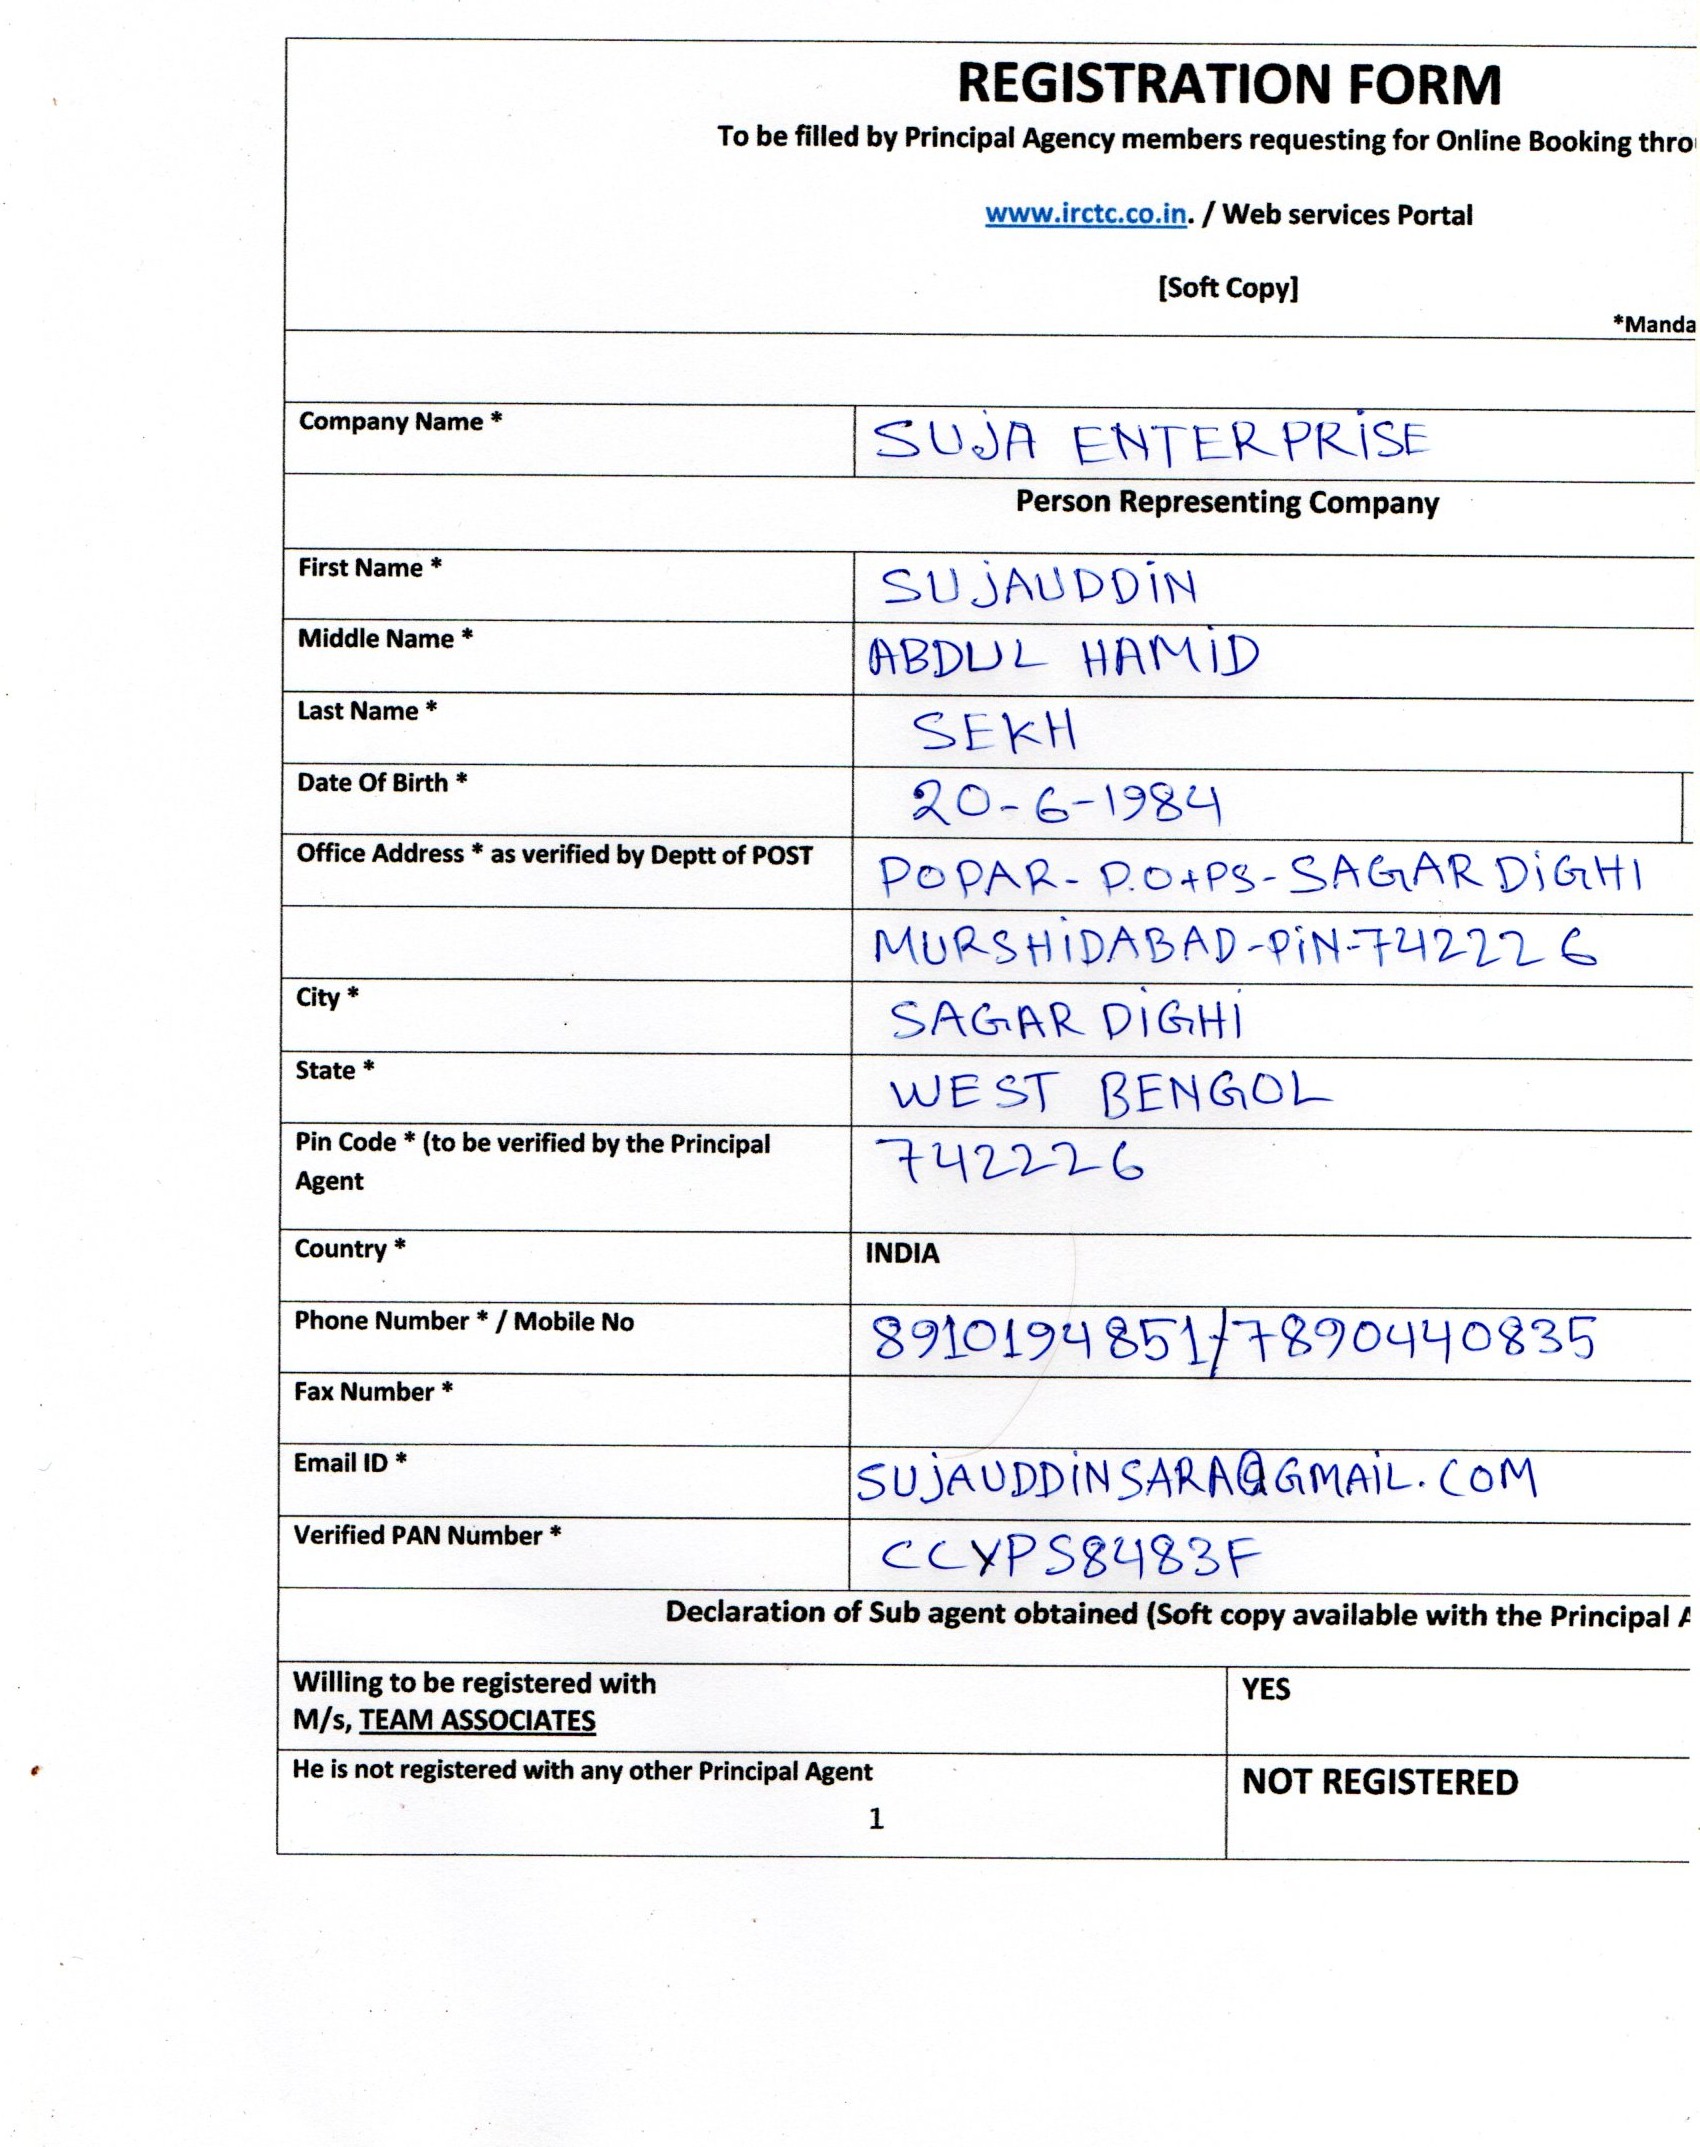 REGISTRATION FORM
To be filled by Principal Agency members requesting for Online Booking thro
www.irctc.co.in. / Web services Portal
[Soft Copy]
*Manda
Company Name * SUJA ENTERPRISE
Person Representing Company
First Name * SUJAUDDIN
Middle Name * ABDUL HAMID
Last Name * SEKH
Date Of Birth * 20-6-1984
Office Address * as verified by Deptt of POST POPAR- P.O+PS- SAGAR DIGHI
MURSHIDABAD-PIN-742226
City * SAGAR DIGHI
State * WEST BENGOL
Pin Code * (to be verified by the Principal 742226
Agent
Country * INDIA
Phone Number * / Mobile No 8910194851/7890440835
Fax Number *
Email ID * SUJAUDDINSARA@GMAIL.COM
Verified PAN Number * CCYPS8483F
Declaration of Sub agent obtained (Soft copy available with the Principal A
Willing to be registered with YES
M/s, TEAM ASSOCIATES
He is not registered with any other Principal Agent NOT REGISTERED
1